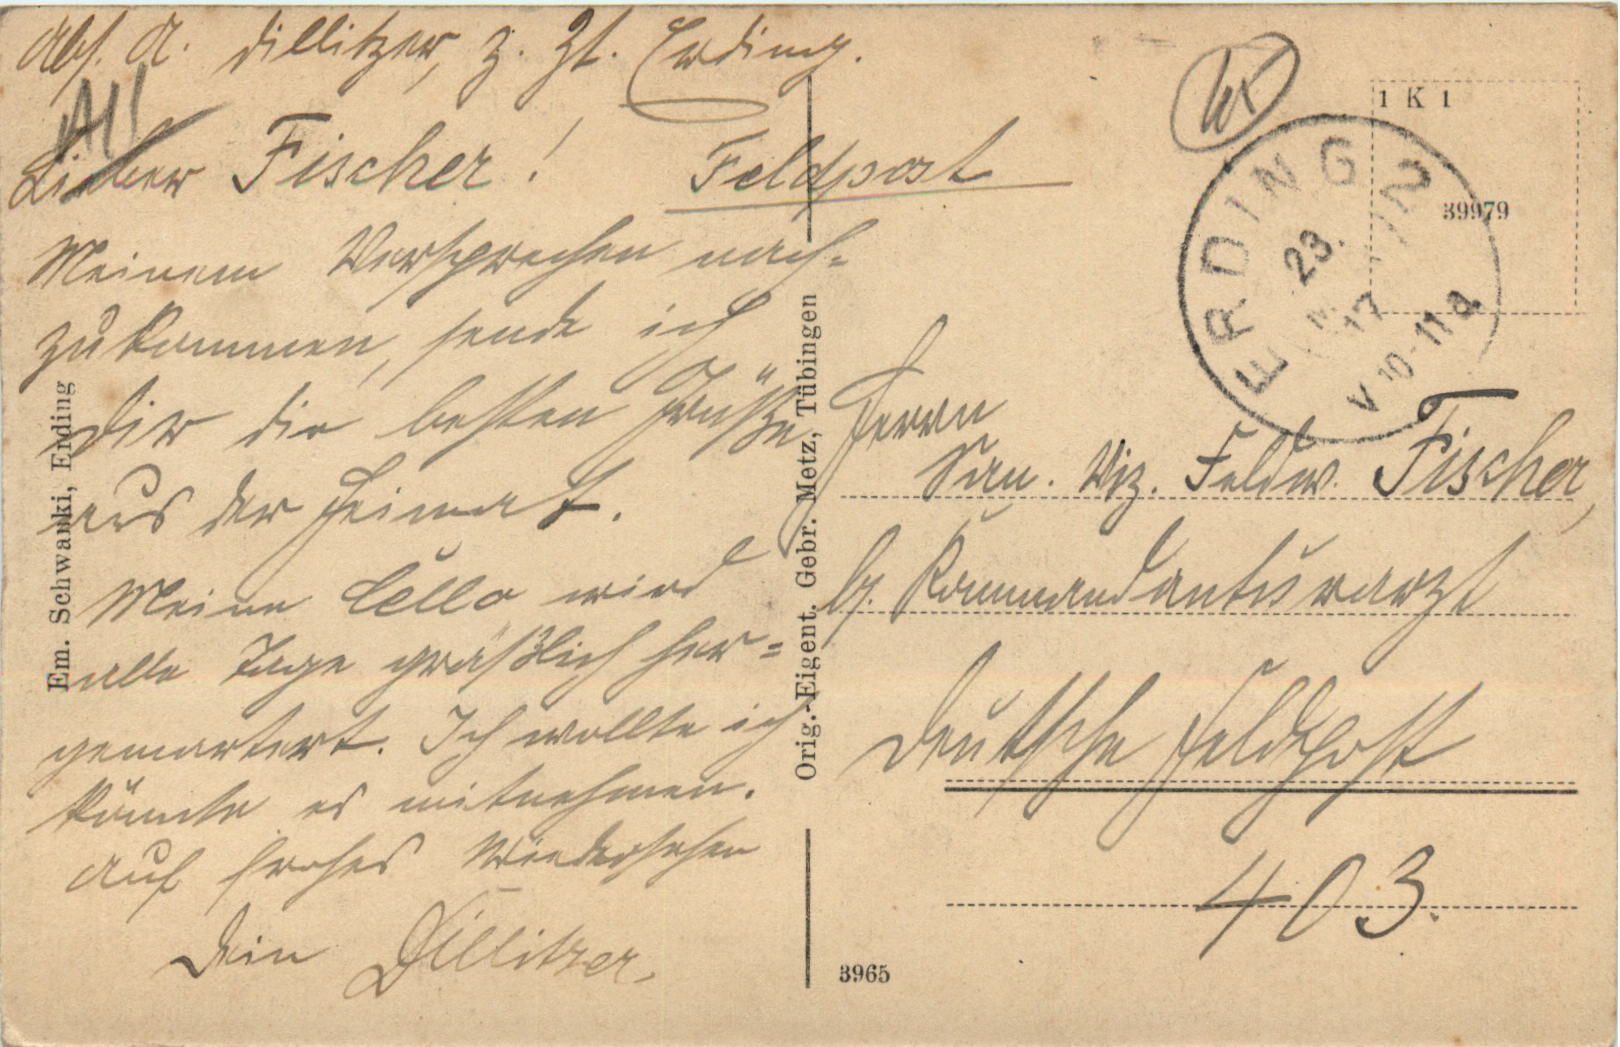 Abs. A. Dillitzer, z. Zt. Erding.
Lieber Fischer!
Feldpost
Meinem Versprechen nach-
zukommen, sende ich
Dir die besten Grüße
aus der Heimat.
Meine Cello wird
alle Tage gräßlich her-
gemartert. Ich wollte ich
könnte es mitnehmen.
Auf frohes Wiedersehen
Dein Dillitzer.
Em. Schwanki, Erding
Orig.-Eigent. Gebr. Metz, Tübingen
3965
1 K 1
39979
ERDING 2
23.
17
V 10-11 a
Herrn
San. Viz. Feldw. Fischer,
b. Kommandanturarzt
Deutsche Feldpost
403.